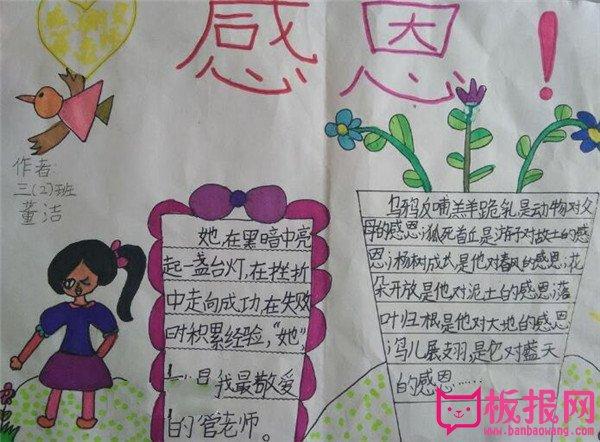 感恩！
作者
三(2)班
董洁
她,在黑暗中亮
起一盏台灯,在挫折
中走向成功,在失败
时积累经验,“她”,
我最敬爱
的管老师。
乌鸦反哺羔羊跪乳是动物对父
母的感恩;狐死首丘是游子对故土的感
恩;杨树成是他对春风的感恩;花
朵开放是他对泥土的感恩;落
叶归根是他对大地的感恩
;鸟儿展翅,是它对蓝天
的感恩……
板报网
www.banbaowang.com